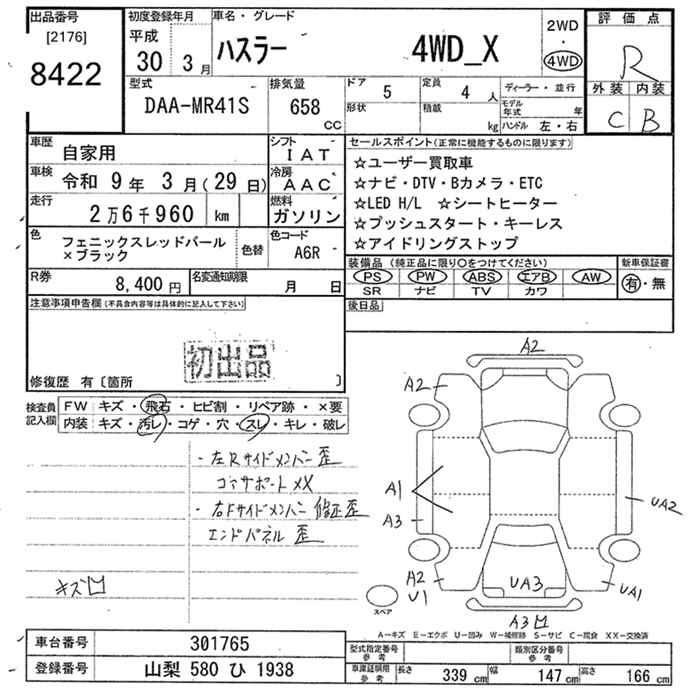 出品番号
[2176]
8422
初度登録年月
平成
30 3月
車名・グレード
ハスラー 4WD_X
2WD
・
4WD
評価点
R
外装 内装
C B
型式
DAA-MR41S
排気量
658
CC
ドア 5
形状
定員 4 人
積載 kg
ディーラー・並行
モデル年式 年
ハンドル 左・右
車歴
自家用
シフト
IAT
車検 令和 9年 3月(29日)
冷房
AAC
走行
2万6千960 km
燃料
ガソリン
色
フェニックスレッドパール
×ブラック
色替
色コード
A6R
R券
8,400円
名変通知期限
月 日
セールスポイント(正常に機能するものに限ります)
☆ユーザー買取車
☆ナビ・DTV・Bカメラ・ETC
☆LED H/L ☆シートヒーター
☆プッシュスタート・キーレス
☆アイドリングストップ
装備品(純正品に限り○をつけてください)
PS PW ABS エアB AW
SR ナビ TV カワ
新車保証書
有・無
後日品
注意事項申告欄(不具合内容等は具体的に記入して下さい)
初出品
修復歴 有〔箇所 〕
検査員
記入欄
FW キズ・飛石・ヒビ割・リペア跡・×要
内装 キズ・汚レ・コゲ・穴・スレ・キレ・破レ
・左Rサイドメンバー歪
コアサポートXX
・右Fサイドメンバー修正歪
エンドパネル歪
キズ凹
A2
A2
A1
A3
UA2
A2
U1
UA3
UA1
A3凹
スペア
A－キズ E－エクボ U－凹み W－補修跡 S－サビ C－腐食 XX－交換済
車台番号 301765
登録番号 山梨 580 ひ 1938
型式指定番号
参考
類別区分番号
参考
車庫証明用
参考
長さ 339 cm 幅 147 cm 高さ 166 cm